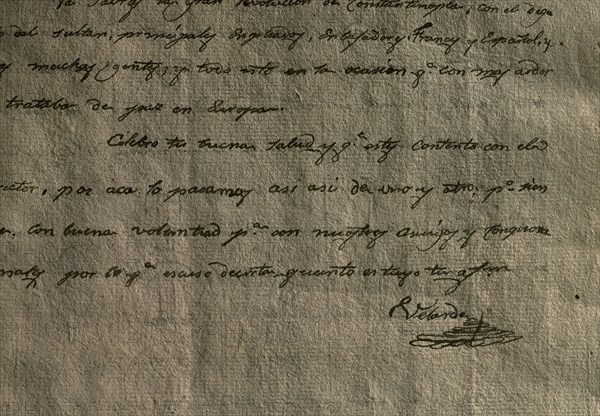 Ya sabrás la gran revolucion de Constantinopla, con el dego
del sultan, principales empleados, Embajadores Frances y Español, y
muchas gentes, y todo esto en la ocasion qᵉ con mas ardor
trataba de paz en Europa.
Celebro tu buena salud y qᵉ estes contento con el
por aca lo pasamos asi asi de uno y otro; pᵒ
con buena voluntad pᵃ con nuestros amigos y
por lo qᵉ escuso decirte quanto es tuyo tu
Velarde